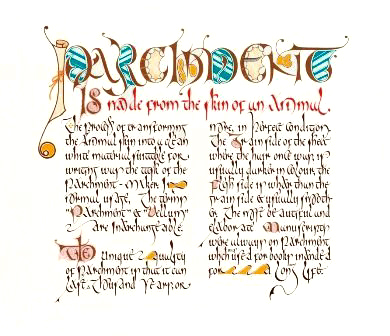 PARCHMENT
IS made from the skin of an Animal.
The Process of transforming
the Animal skin into a clean
white material suitable for
writing was the task of the
Parchment-Maker. In
normal usage, The terms
"Parchment" & "Vellum"
are interchangeable.
The Unique Quality
of Parchment is that it can
Last a Thousand Years or
more, in Perfect Condition
The Grain side of the sheet
where the hair once was, is
usually darker in colour, the
Flesh side is whiter than the
grain side & usually smooth-
er. The most beautiful and
elaborate Manuscripts
were always on Parchment
which used for books intended
for a Long Life.